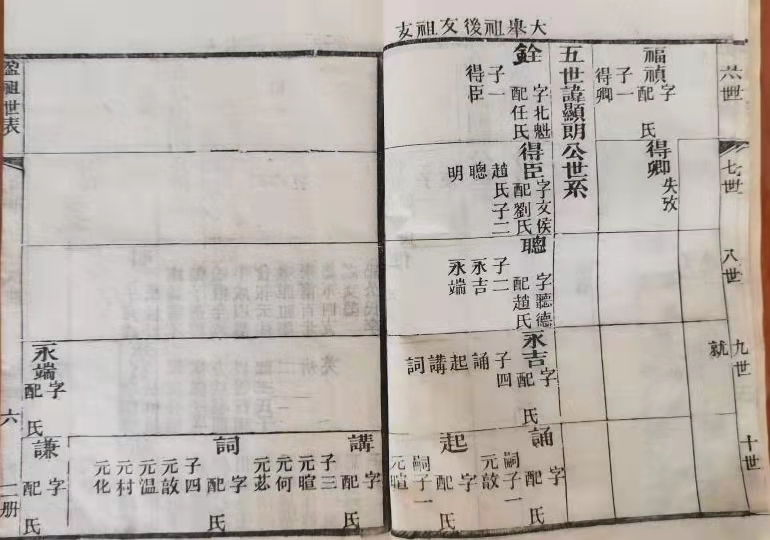 大舉祖後友祖支
六世
七世
八世
九世
十世
福禎
字
配 氏
子一
得卿
得卿
失攷
就
五世諱顯明公世系
銓
字北魁
配任氏
子一
得臣
得臣
字文侯
配劉氏
趙氏子二
聰
明
聰
字聽德
配趙氏
子二
永吉
永端
永吉
字
配 氏
子四
誦 起 講 詞
誦
字
配 氏
嗣子一
元敔
起
字
配 氏
嗣子一
元暄
講
字
配 氏
子三
元暄
元何
元苾
詞
字
配 氏
子四
元敔
元温
元村
元化
永端
字
配 氏
謙
字
配 氏
盈祖世表
六
二册